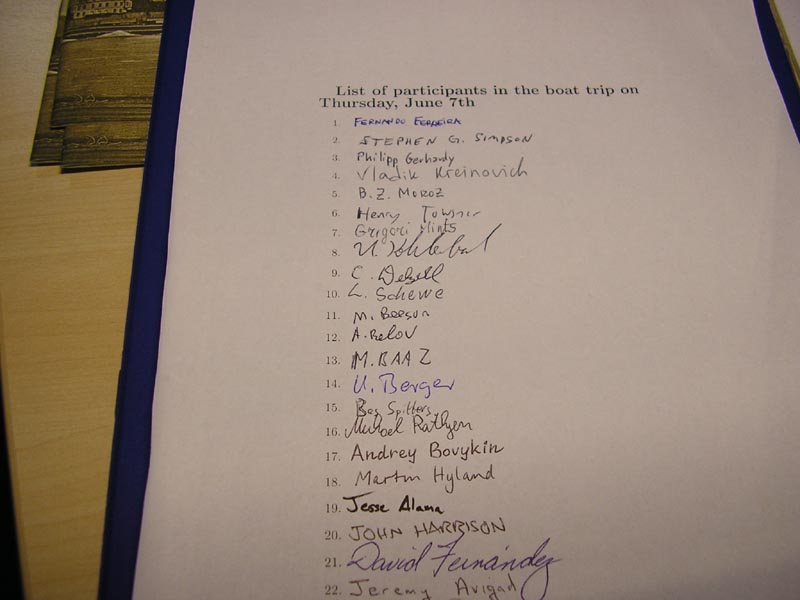 List of participants in the boat trip on
Thursday, June 7th
1. FERNANDO FERREIRA
2. STEPHEN G. SIMPSON
3. Philipp Gerhardy
4. Vladik Kreinovich
5. B. Z. MOROZ
6. Henry Towsner
7. Grigori Mints
8. U. Kohlenbach
9. C.
10. L. Schewe
11. M. Beeson
12. A. Belov
13. M. BAAZ
14. U. Berger
15. Bas Spitters
16. Michael Rathjen
17. Andrey Bovykin
18. Martin Hyland
19. Jesse Alama
20. JOHN HARRISON
21. David Fernández
22. Jeremy Avigad